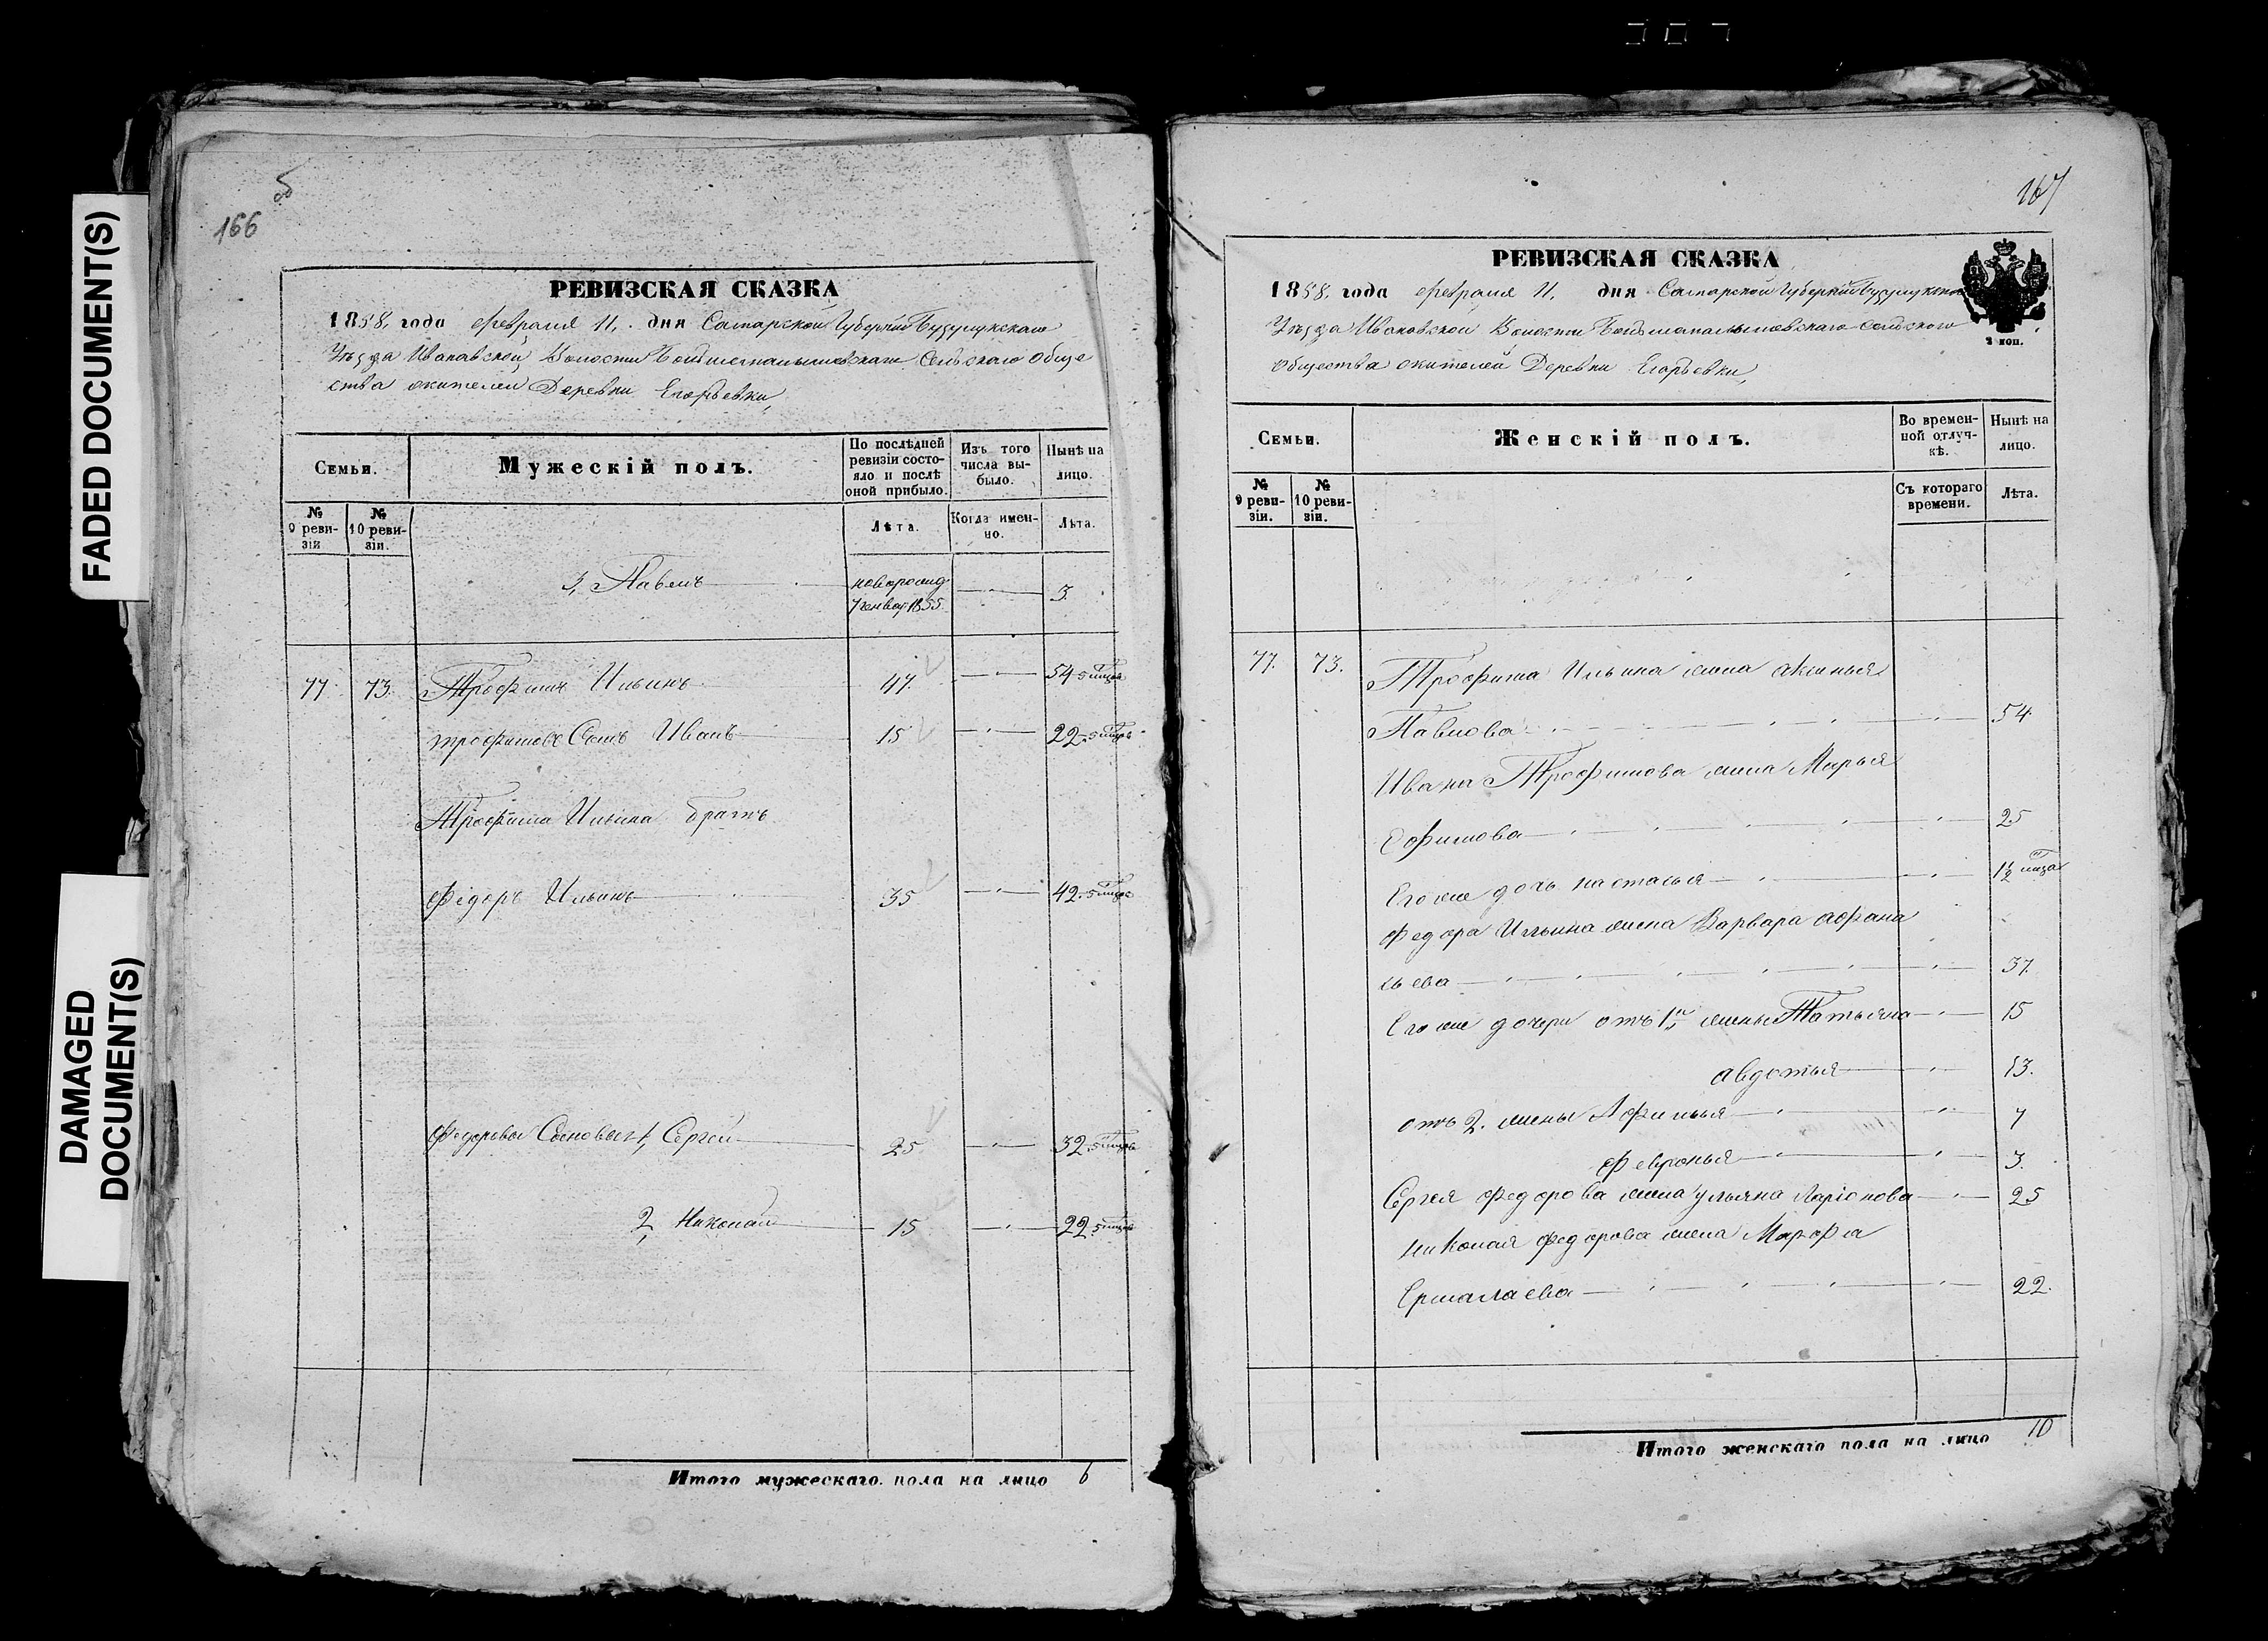 FADED DOCUMENT(S)
DAMAGED
DOCUMENT(S)
об
166
РЕВИЗСКАЯ СКАЗКА
1858, года февраля 11, дня Самарской Губерніи Бузулукскаго
Уѣзда Ивановской Волости Сельскаго обще
ства жителей Деревни Егорьевки,
Семьи.
Мужескій полъ.
По послѣдней ревизіи состояло и послѣ оной прибыло.
Изъ того числа выбыло.
Нынѣ на лицо.
№ 9 ревизіи
№ 10 ревизіи.
Лѣта.
Когда именно.
Лѣта.
3, Павелъ новорожд. 7 генвар. 1855 3.
77. 73. Трофимъ Ильинъ 47. 54
трофимовъ Сынъ Иванъ 15 22.
Трофима Ильина братъ
Федоръ Ильинъ 35 42.
Федоровы Сыновья 1, Сергей 25 32.
2, Николай 15 22.
Итого мужескаго пола на лицо 6
167
РЕВИЗСКАЯ СКАЗКА
1858. года февраля 11, дня Самарской Губерніи Бузулукскаго
Уѣзда Ивановской Волости сельскаго
общества жителей Деревни Егорьевки,
2 коп.
Семьи.
Женскій полъ.
Во временной отлучкѣ.
Нынѣ на лицо.
№ 9 ревизіи.
№ 10 ревизіи.
Съ котораго времени.
Лѣта.
77. 73. Трофима Ильина жена аксинья
Павлова 54
Ивана Трофимова жена Марья
Ефимова 25
Его же дочь настасья 1½
Федора Ильина жена Варвара афана
сьева 37.
Его же дочери отъ 1й жены Татьяна 15
авдотья 13.
отъ 2. жены Афимья 7
Февронья 3.
Сергея федорова жена ульяна Ларіонова 25
николая федорова жена Марфа
Ермалаева 22.
Итого женскаго пола на лицо 10